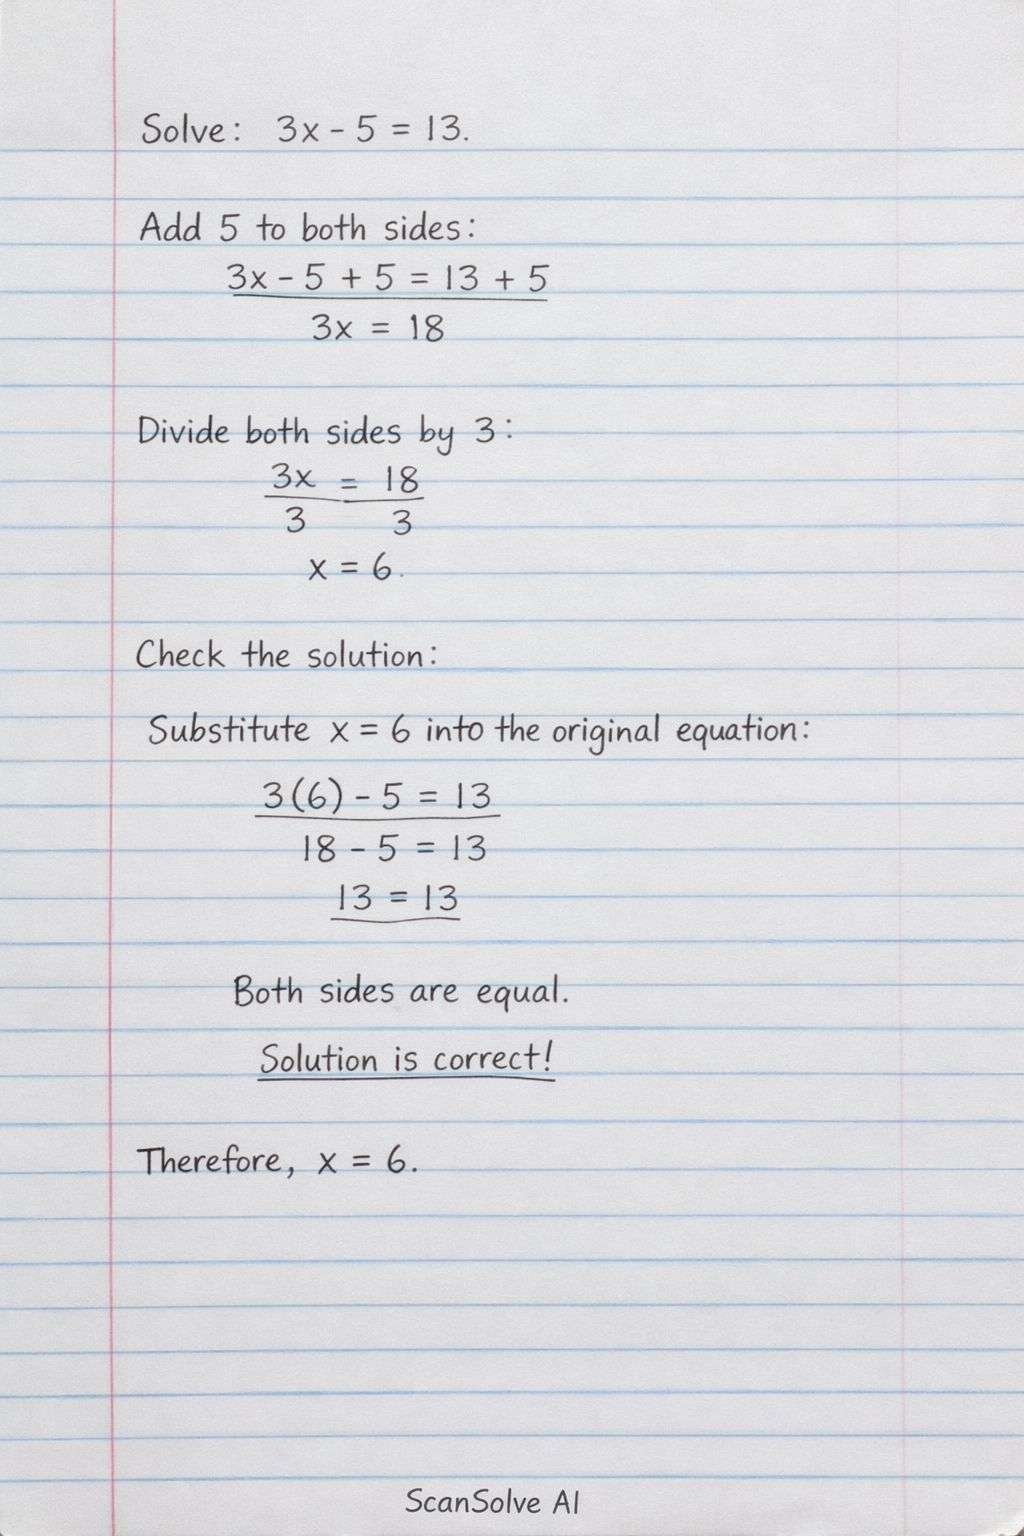 Solve: 3x - 5 = 13.
Add 5 to both sides:
3x - 5 + 5 = 13 + 5
3x = 18
Divide both sides by 3:
3x = 18
3 3
x = 6.
Check the solution:
Substitute x = 6 into the original equation:
3(6) - 5 = 13
18 - 5 = 13
13 = 13
Both sides are equal.
Solution is correct!
Therefore, x = 6.
ScanSolve AI